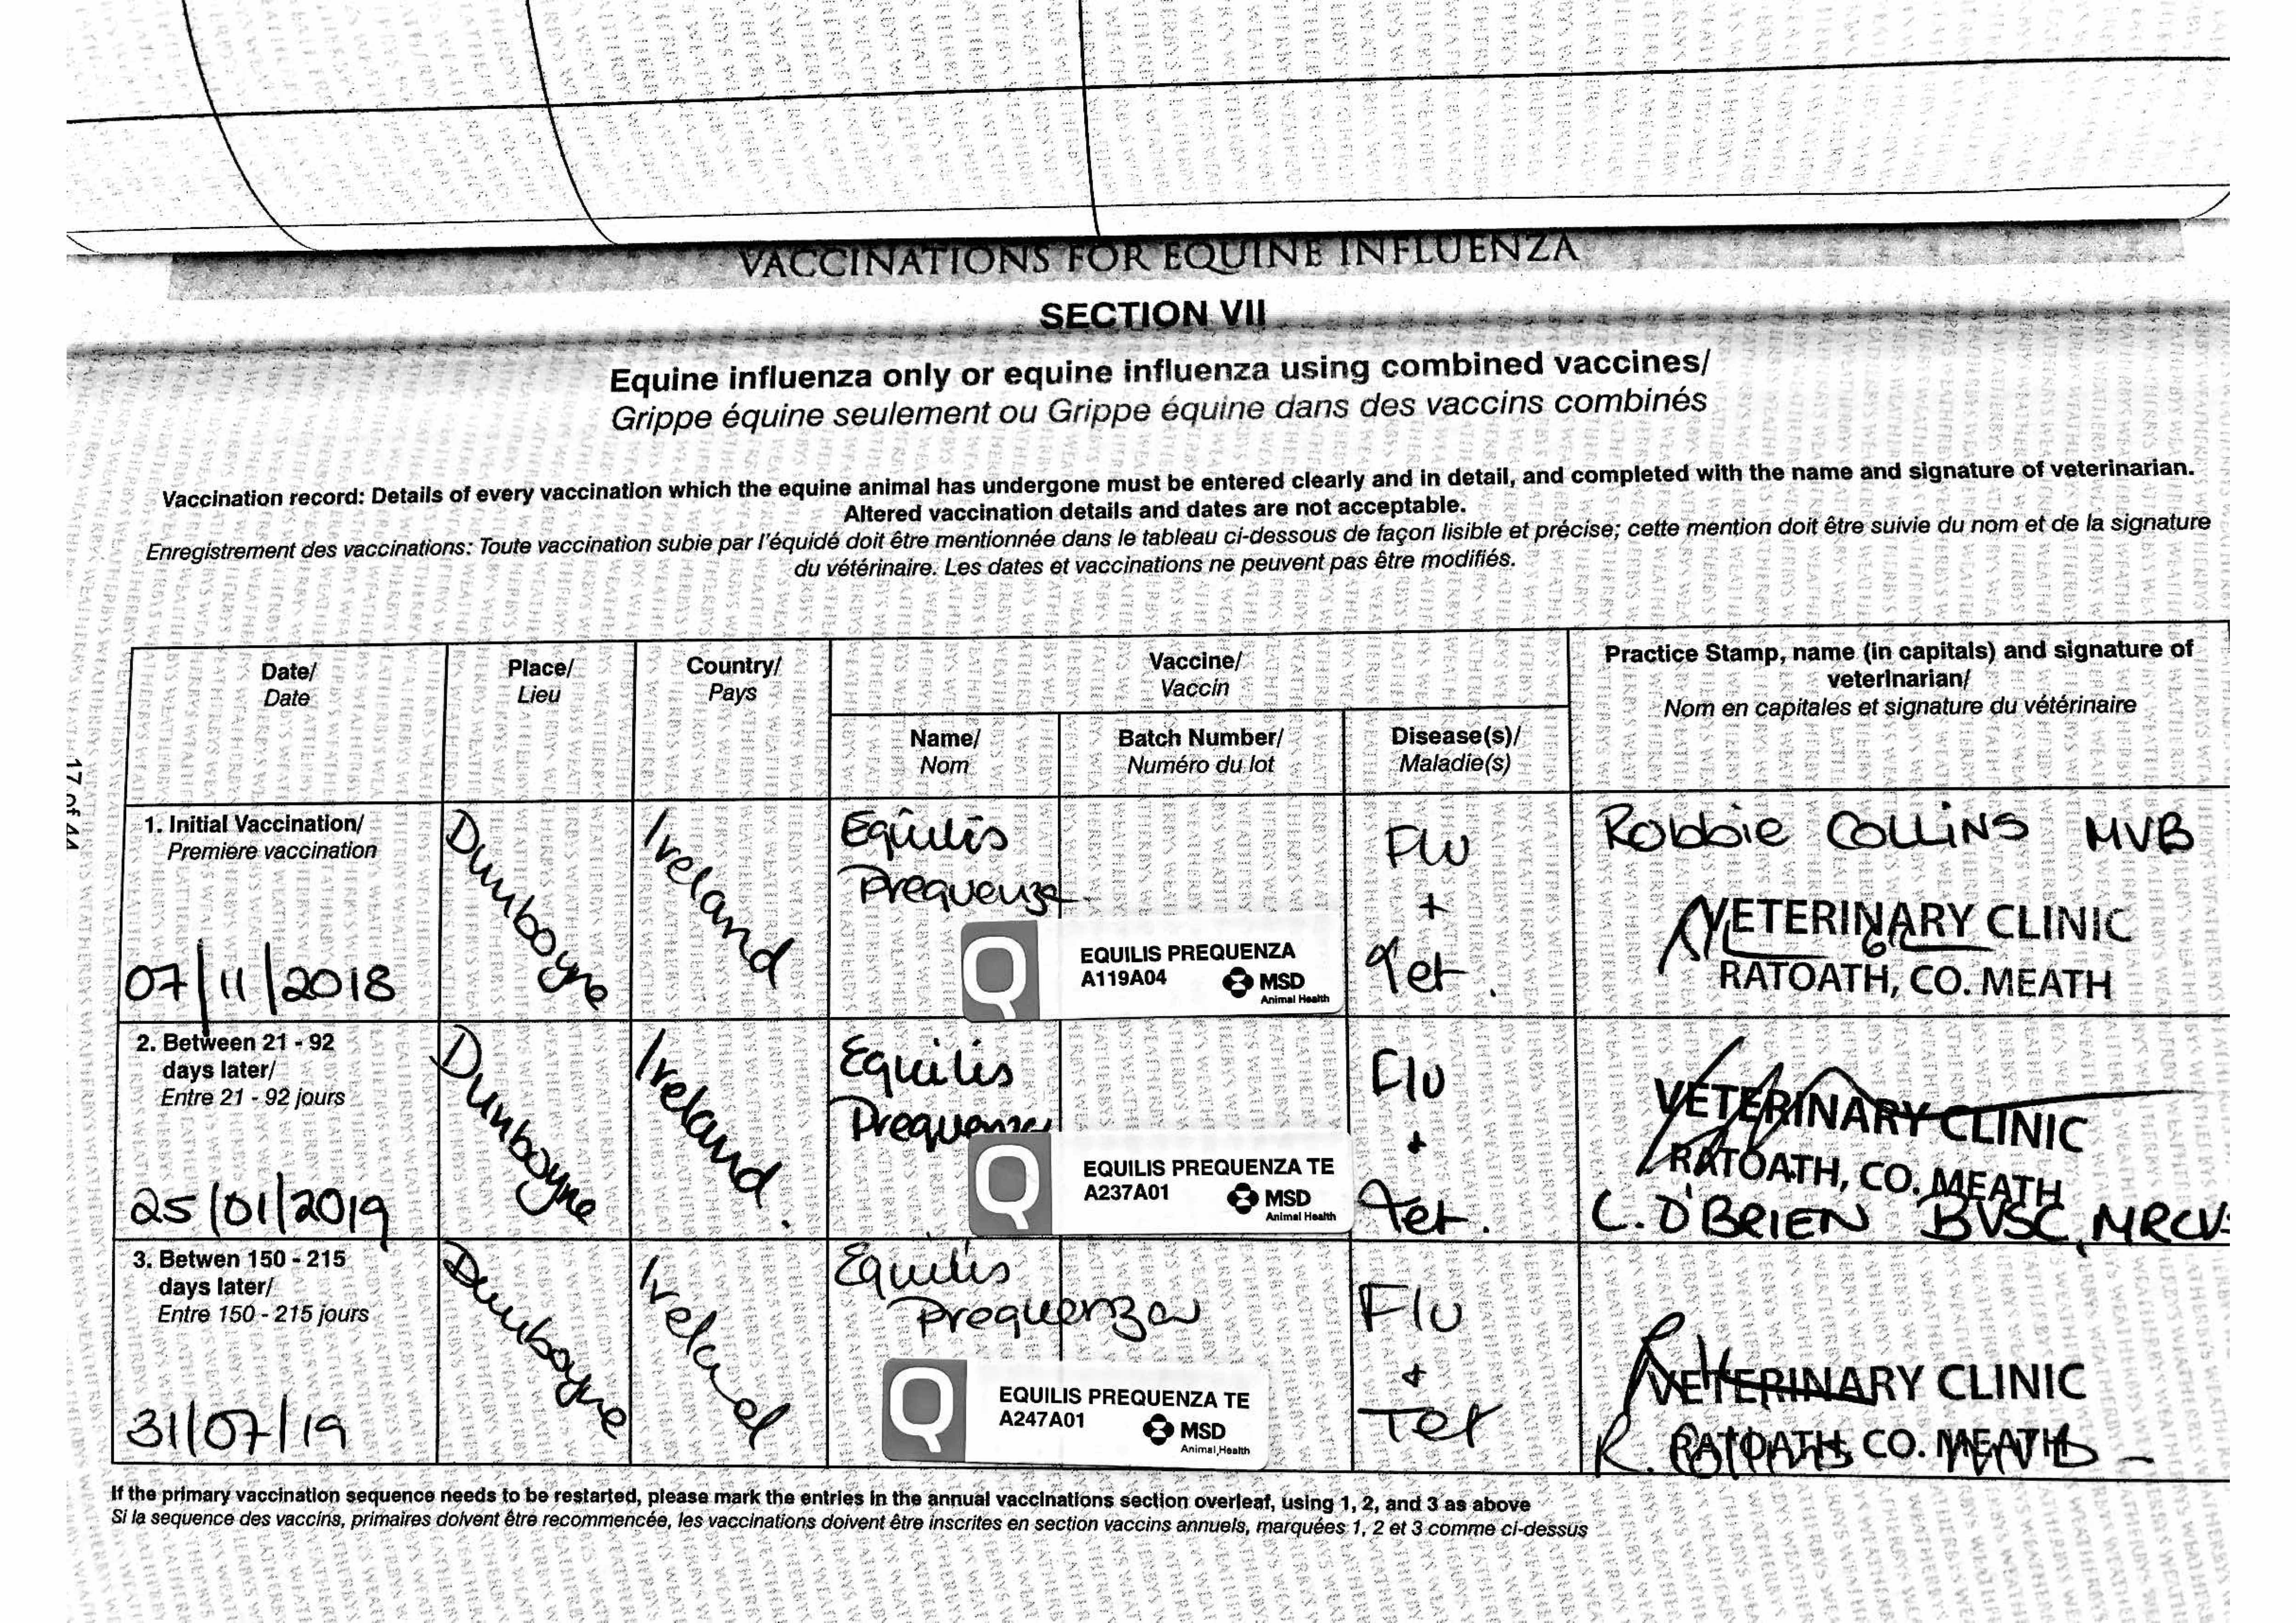 VACCINATIONS FOR EQUINE INFLUENZA
SECTION VII
Equine influenza only or equine influenza using combined vaccines/
Grippe équine seulement ou Grippe équine dans des vaccins combinés
Vaccination record: Details of every vaccination which the equine animal has undergone must be entered clearly and in detail, and completed with the name and signature of veterinarian.
Altered vaccination details and dates are not acceptable.
Enregistrement des vaccinations: Toute vaccination subie par l'équidé doit être mentionnée dans le tableau ci-dessous de façon lisible et précise; cette mention doit être suivie du nom et de la signature
du vétérinaire. Les dates et vaccinations ne peuvent pas être modifiés.
Date/
Date
Place/
Lieu
Country/
Pays
Vaccine/
Vaccin
Name/
Nom
Batch Number/
Numéro du lot
Disease(s)/
Maladie(s)
Practice Stamp, name (in capitals) and signature of
veterinarian/
Nom en capitales et signature du vétérinaire
17 of 44
1. Initial Vaccination/
Premiere vaccination
07/11/2018
Dunboyne
Ireland
Equilis
Prequenza
EQUILIS PREQUENZA
A119A04
MSD
Animal Health
Flu
+
Tet.
Robbie COLLINS MVB
VETERINARY CLINIC
RATOATH, CO. MEATH
2. Between 21 - 92
days later/
Entre 21 - 92 jours
25/01/2019
Dunboyne
Ireland.
Equilis
Prequenza
EQUILIS PREQUENZA TE
A237A01
MSD
Animal Health
Flu
+
Tet.
VETERINARY CLINIC
RATOATH, CO. MEATH
C. O'BRIEN BVSC, MRCVS
3. Betwen 150 - 215
days later/
Entre 150 - 215 jours
31/07/19
Dunboyne
Ireland
Equilis
Prequenza
EQUILIS PREQUENZA TE
A247A01
MSD
Animal Health
Flu
+
Tet
VETERINARY CLINIC
RATOATH, CO. MEATH
If the primary vaccination sequence needs to be restarted, please mark the entries in the annual vaccinations section overleaf, using 1, 2, and 3 as above
Si la sequence des vaccins, primaires doivent être recommencée, les vaccinations doivent être inscrites en section vaccins annuels, marquées 1, 2 et 3 comme ci-dessus